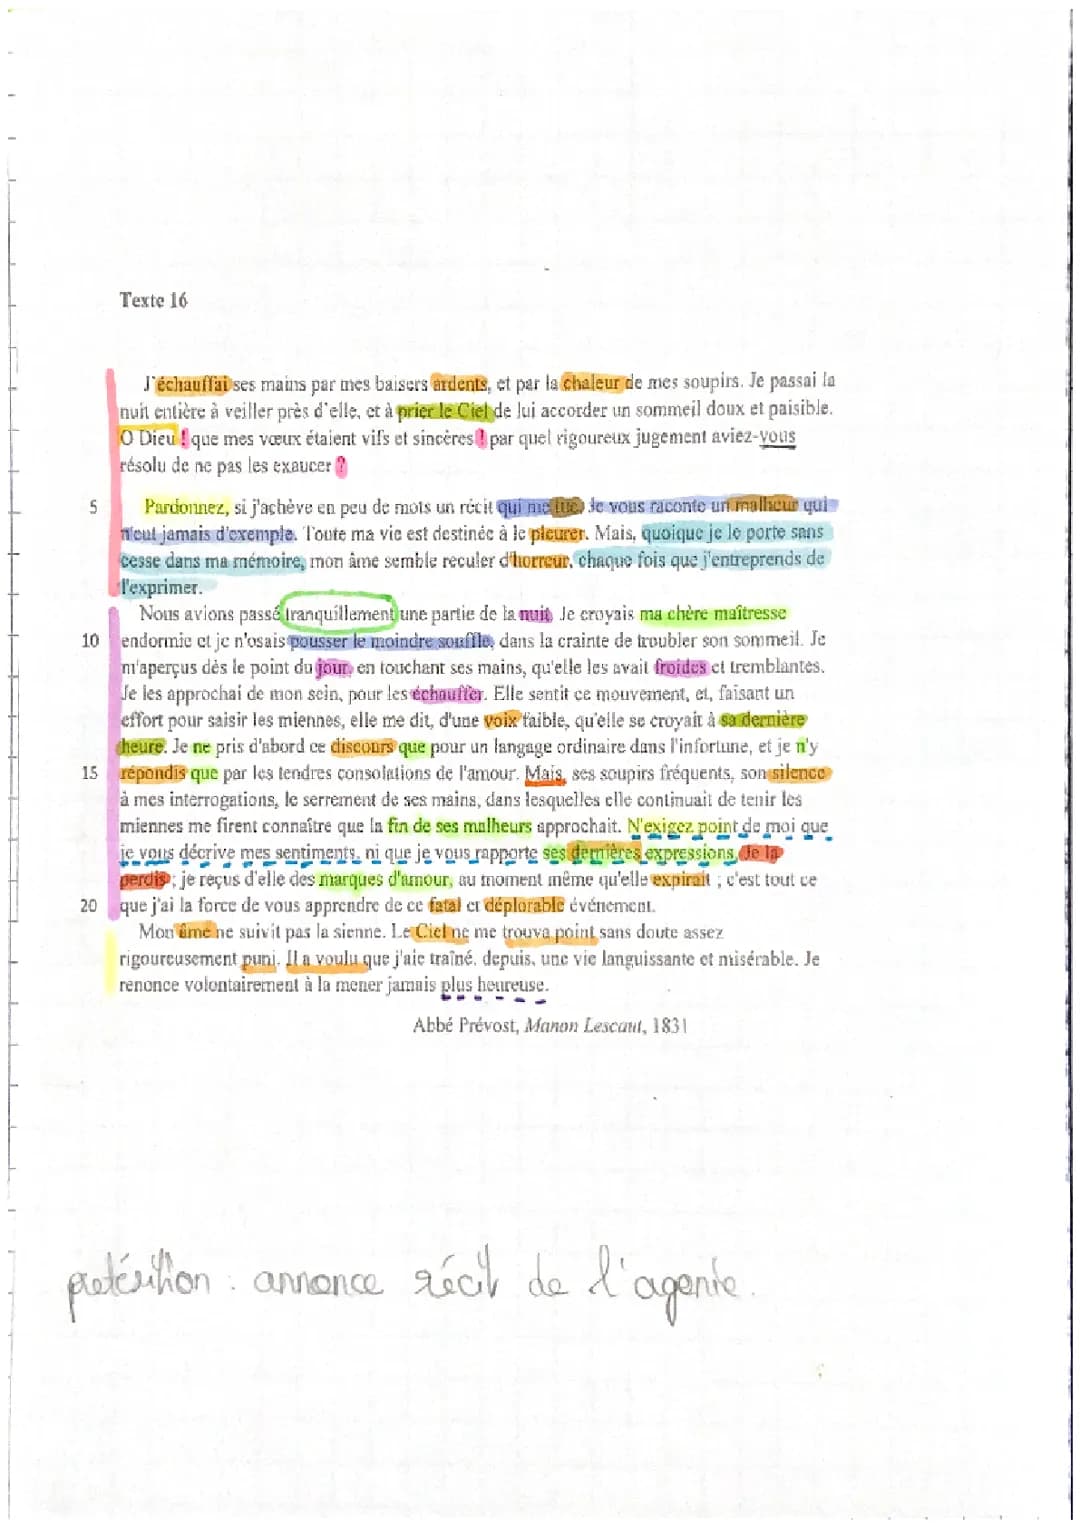 Texte 16
J'échauffai ses mains par mes baisers ardents, et par la chaleur de mes soupirs. Je passai la
nuit entière à veiller près d'elle, et à prier le Ciel de lui accorder un sommeil doux et paisible.
O Dieu ! que mes vœux étaient vifs et sincères ! par quel rigoureux jugement aviez-vous
résolu de ne pas les exaucer ?
5 Pardonnez, si j'achève en peu de mots un récit qui me tue. Je vous raconte un malheur qui
n'eut jamais d'exemple. Toute ma vie est destinée à le pleurer. Mais, quoique je le porte sans
cesse dans ma mémoire, mon âme semble reculer d'horreur, chaque fois que j'entreprends de
l'exprimer.
Nous avions passé tranquillement une partie de la nuit. Je croyais ma chère maîtresse
10 endormie et je n'osais pousser le moindre souffle, dans la crainte de troubler son sommeil. Je
m'aperçus dès le point du jour, en touchant ses mains, qu'elle les avait froides et tremblantes.
Je les approchai de mon sein, pour les échauffer. Elle sentit ce mouvement, et, faisant un
effort pour saisir les miennes, elle me dit, d'une voix faible, qu'elle se croyait à sa dernière
heure. Je ne pris d'abord ce discours que pour un langage ordinaire dans l'infortune, et je n'y
15 répondis que par les tendres consolations de l'amour. Mais, ses soupirs fréquents, son silence
à mes interrogations, le serrement de ses mains, dans lesquelles elle continuait de tenir les
miennes me firent connaître que la fin de ses malheurs approchait. N'exigez point de moi que
je vous décrive mes sentiments, ni que je vous rapporte ses dernières expressions. Je la
perdis ; je reçus d'elle des marques d'amour, au moment même qu'elle expirait ; c'est tout ce
20 que j'ai la force de vous apprendre de ce fatal et déplorable événement.
Mon âme ne suivit pas la sienne. Le Ciel ne me trouva point sans doute assez
rigoureusement puni. Il a voulu que j'aie traîné, depuis, une vie languissante et misérable. Je
renonce volontairement à la mener jamais plus heureuse.
Abbé Prévost, Manon Lescaut, 1831
pretérition : annonce récit de l'agonie.